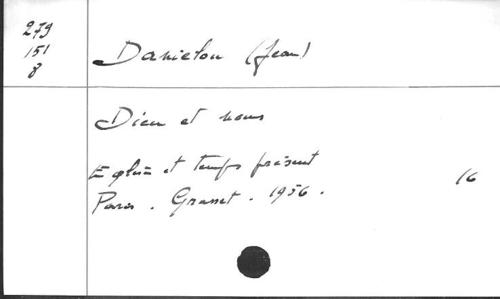 279
151
8
Danielou (Jean)
Dieu et nous
Eglise et temps présent
Paris. Grasset. 1956.
16